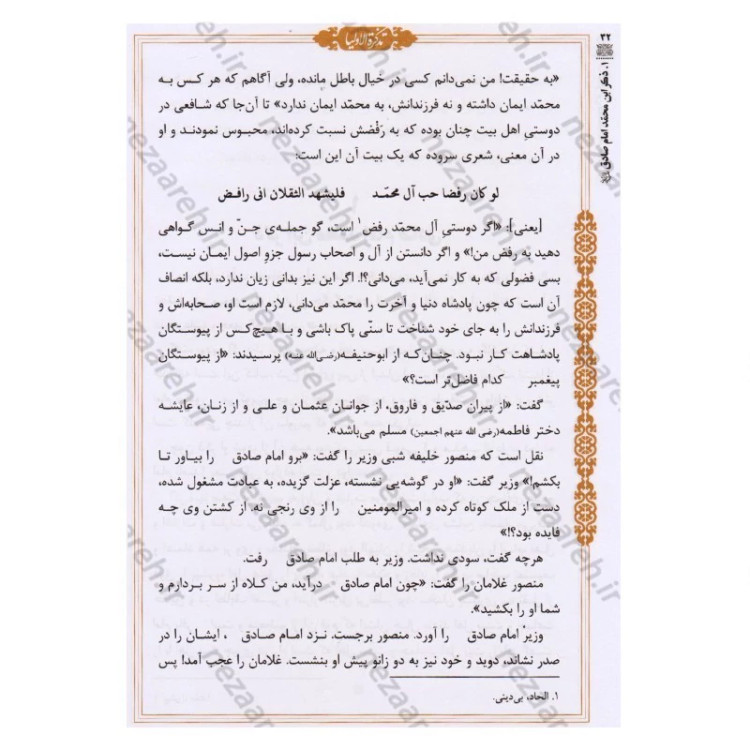 تذکرة الاولیا
۳۲
۱. ذکر ابن محمّد امام صادق
«به حقیقت! من نمی‌دانم کسی در خیال باطل مانده، ولی آگاهم که هر کس به
محمّد ایمان داشته و نه فرزندانش، به محمّد ایمان ندارد» تا آن‌جا که شافعی در
دوستیِ اهل بیت چنان بوده که به رَفْضش نسبت کرده‌اند، محبوس نمودند و او
در آن معنی، شعری سروده که یک بیت آن این است:
لو کان رفضا حب آل محمّد فلیشهد الثقلان انی رافض
[یعنی]: «اگر دوستیِ آل محمّد رفض۱ است، گو جمله‌ی جنّ و انس گواهی
دهید به رفض من!» و اگر دانستن از آل و اصحاب رسول جزوِ اصول ایمان نیست،
بسی فضولی که به کار نمی‌آید، می‌دانی؟!. اگر این نیز بدانی زیان ندارد، بلکه انصاف
آن است که چون پادشاه دنیا و آخرت را محمّد می‌دانی، لازم است او، صحابه‌اش و
فرزندانش را به جای خود شناخت تا سنّی پاک باشی و با هیچ‌کس از پیوستگان
پادشاهت کار نبود. چنان‌که از ابوحنیفه(رضی‌الله عنه) پرسیدند: «از پیوستگان
پیغمبر کدام فاضل‌تر است؟»
گفت: «از پیران صدّیق و فاروق، از جوانان عثمان و علی و از زنان، عایشه
دختر فاطمه(رضی الله عنهم اجمعین) مسلم می‌باشد».
نقل است که منصور خلیفه شبی وزیر را گفت: «برو امام صادق را بیاور تا
بکشم!» وزیر گفت: «او در گوشه‌یی نشسته، عزلت گزیده، به عبادت مشغول شده،
دست از ملک کوتاه کرده و امیرالمومنین را از وی رنجی نه. از کشتن وی چه
فایده بود؟!»
هرچه گفت، سودی نداشت. وزیر به طلب امام صادق رفت.
منصور غلامان را گفت: «چون امام صادق درآید، من کلاه از سر بردارم و
شما او را بکشید».
وزیر امام صادق را آورد. منصور برجست. نزد امام صادق ، ایشان را در
صدر نشاند، دوید و خود نیز به دو زانو پیش او بنشست. غلامان را عجب آمد! پس
۱. الحاد، بی‌دینی.
nezaareh.ir